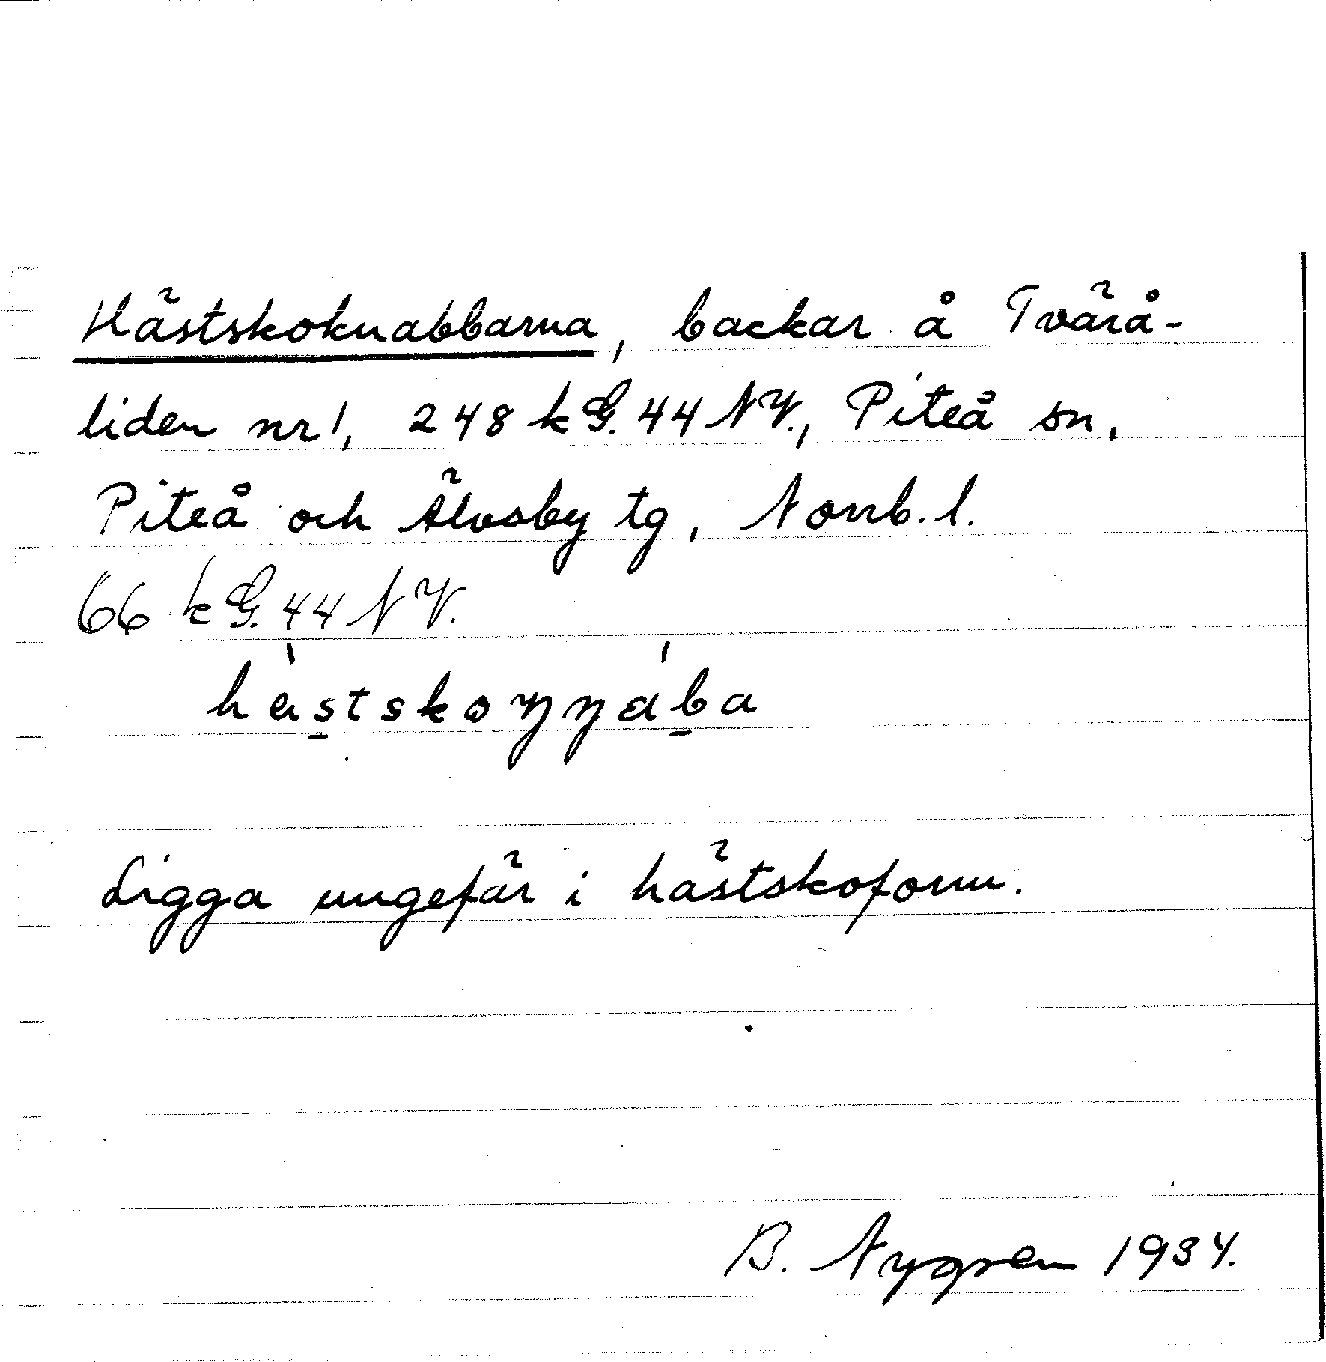 Hästskoknabbarna, backar å Tvärå-
liden nr 1, 248 k G. 44 NV., Piteå sn,
Piteå och Älvsby tg, Norrb. l.
66 k G. 44 NV.
Ligga ungefär i hästskoform.
B. Nygren 1934.